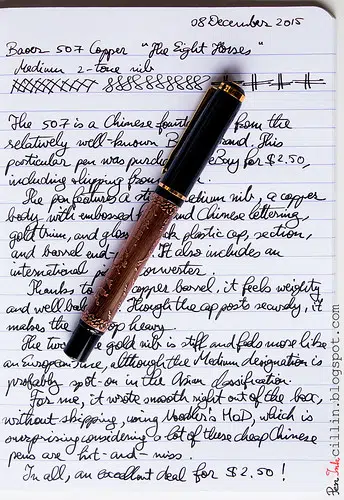 08 December 2015
Baoer 507 Copper "The Eight Horses"
Medium 2-tone nib
The 507 is a Chinese from the
relatively well-known This
particular pen was Bay for $2.50,
including shipping from
The pen features a a copper
body with embossed and Chinese lettering,
gold trim, and plastic cap, section,
and barrel end- It also includes an
international converter.
Thanks to copper barrel, it feels weighty
and well Though the cap posts securely, it
makes the heavy.
The gold nib is stiff and feels more like
an European fine, although the Medium designation is
probably spot-on in the Asian classification.
For me, it wrote smooth right out of the box,
without skipping, using Noodler's HoD, which is
surprising considering a lot of these cheap Chinese
pens are hit-and-miss.
In all, an excellent deal for $2.50!
Pen Ink cillin.blogspot.com